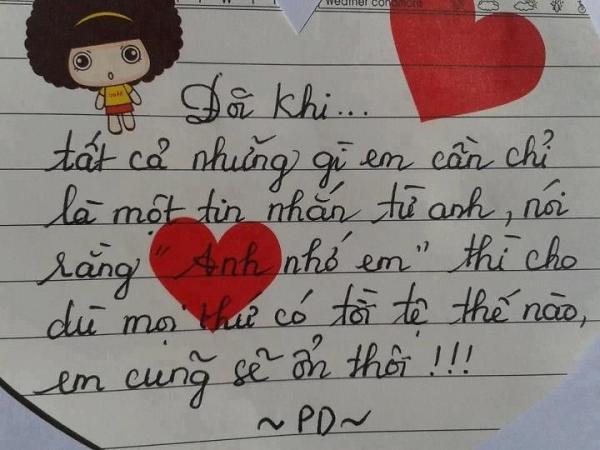 Weather condition
Đôi khi...
tất cả những gì em cần chỉ
là một tin nhắn từ anh, nói
rằng "Anh nhớ em" thì cho
dù mọi thứ có tồi tệ thế nào,
em cũng sẽ ổn thôi!!!
~PD~